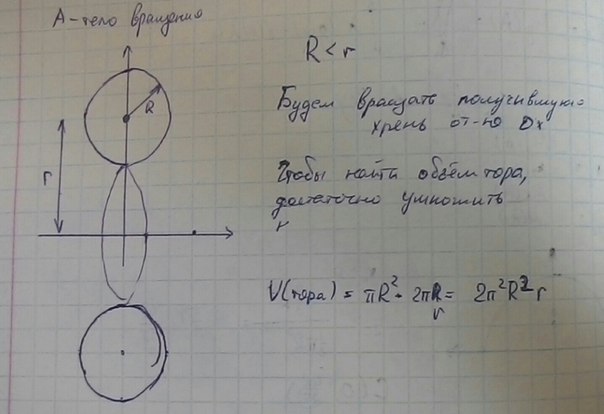 A - тело вращения
R < r
R
Будем вращать получившуюся
хрень от-но Ox
r
Чтобы найти объём тора,
достаточно умножить
V(тора) = πR² · 2πR = 2π²R² r
r